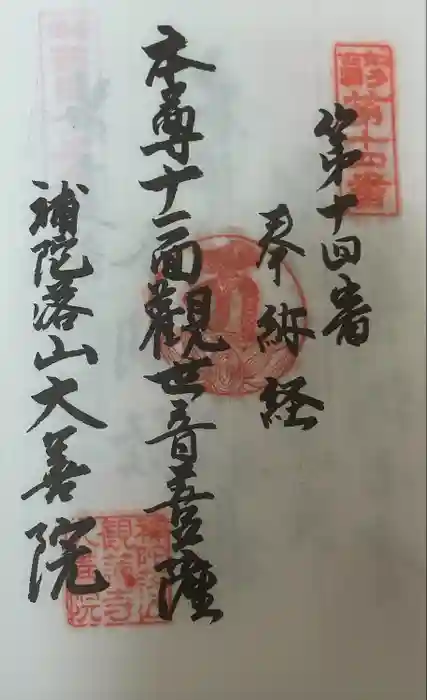 第十四番
奉納経
本尊十一面觀世音菩薩
補陀落山大善院
第十四番